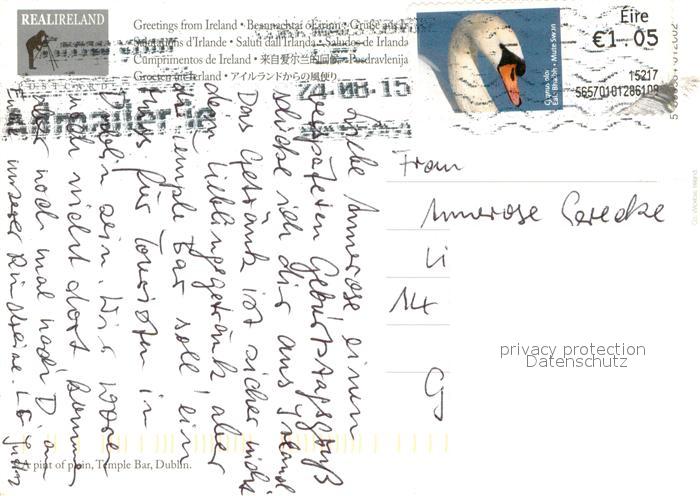 REALIRELAND
POSTCARDS
Greetings from Ireland • Beannachtaí ó Éirinn • Grüße aus
Salutations d'Irlande • Saluti dall'Irlanda • Saludos de Irlanda
Cumprimentos de Irlande • 来自爱尔兰的问候 • Pozdravlenija
Groeten uit Ierland • アイルランドからの風便り
24-08-15
Éire
€1.05
15217
Cygnus olor
Eala Bhalbh • Mute Swan
Liebe Annerose, einen
verspäteten Geburtstagsgruß
schicke ich dir aus Irland
Das Getränk ist sicher nicht
dein Lieblingsgetränk aber
die Temple Bar soll ein
muss für Touristen in
Dublin sein. Wir waren
noch nicht dort
noch mal nach D. am
Ende unserer Rundreise. LG
Frau
Annerose Gerecke
Li
14
G
privacy protection
Datenschutz
A pint of plain, Temple Bar, Dublin.